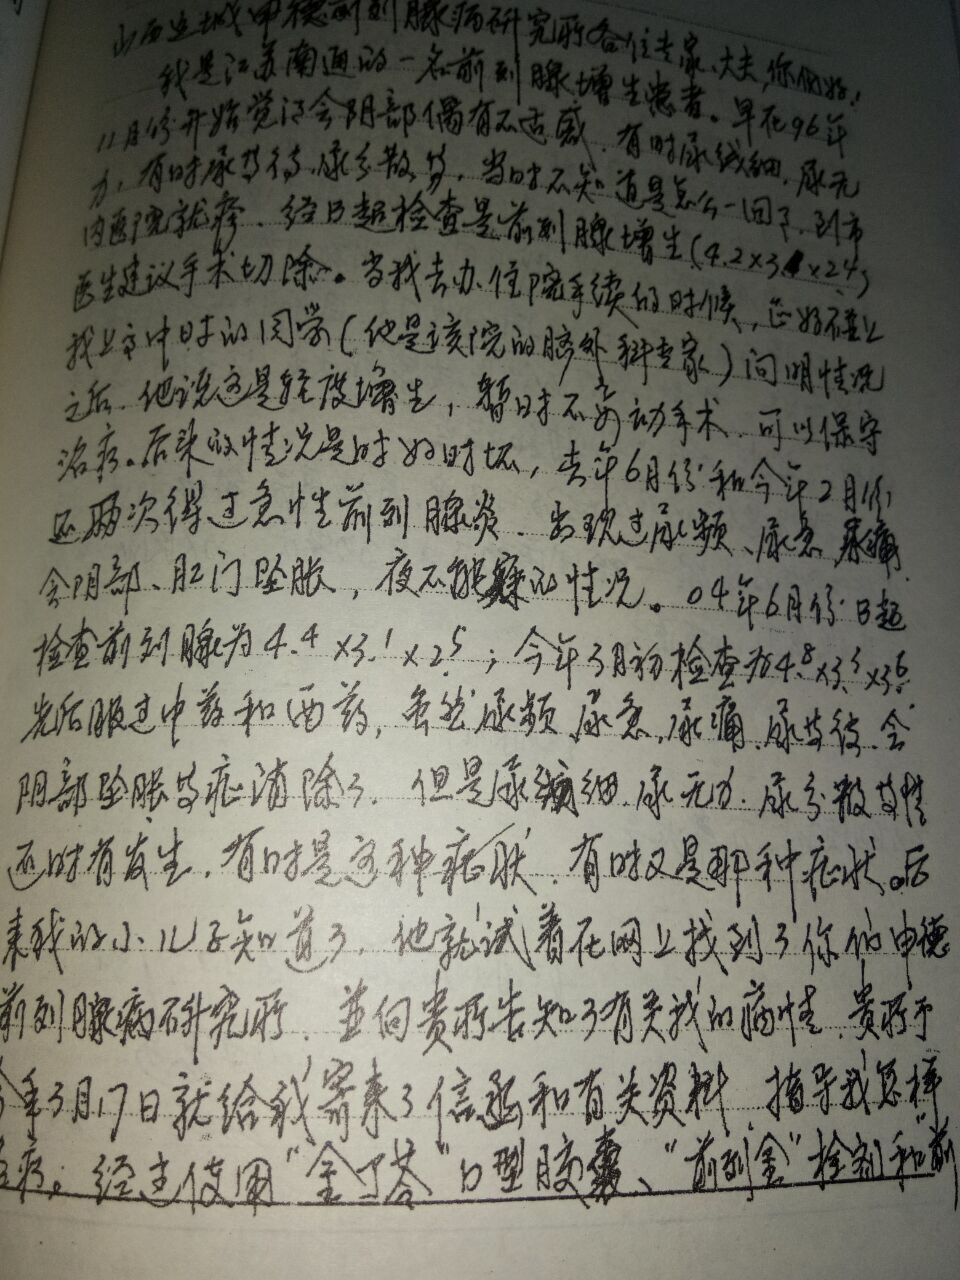 山西运城申德前列腺病研究所各位专家、大夫，你们好！
我是江苏南通的一名前列腺增生患者。早在96年
11月份开始觉得会阴部偶有不适感，有时尿线细，尿无
力，有时尿等待，尿分散等，当时不知道是怎么一回事，到市
内医院就疹，经B超检查是前列腺增生(4.2×3.4×2.4)
医生建议手术切除。当我去办住院手续的时候，正好碰上
我上高中时的同学(他是该院的脑外科专家)问明情况
之后，他说这是轻度增生，暂时不必动手术，可以保守
治疗。后来的情况是时好时坏，去年6月份和今年2月份
还两次得过急性前列腺炎，出现过尿频、尿急、尿痛，
会阴部、肛门坠胀，夜不能寐的情况。04年6月份B超
检查前列腺为4.4×3.1×2.5；今年3月初检查为4.8×3.3×3.6。
先后服过中药和西药，虽然尿频、尿急、尿痛、尿等待、会
阴部坠胀等症消除了，但是尿线细、尿无力、尿分散等情
还时有发生，有时是这种症状，有时又是那种症状。后
来我的小儿子知道了，他就试着在网上找到了你们申德
前列腺病研究所，并向贵所告知了有关我的病情，贵所于
今年3月17日就给我寄来了信函和有关资料，指导我怎样
疗。经过使用"金丁荅"D型胶囊、"前列金"栓剂和"前